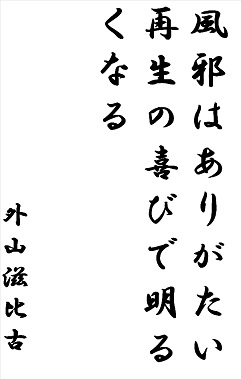 風邪はありがたい
再生の喜びで明る
くなる
外山滋比古